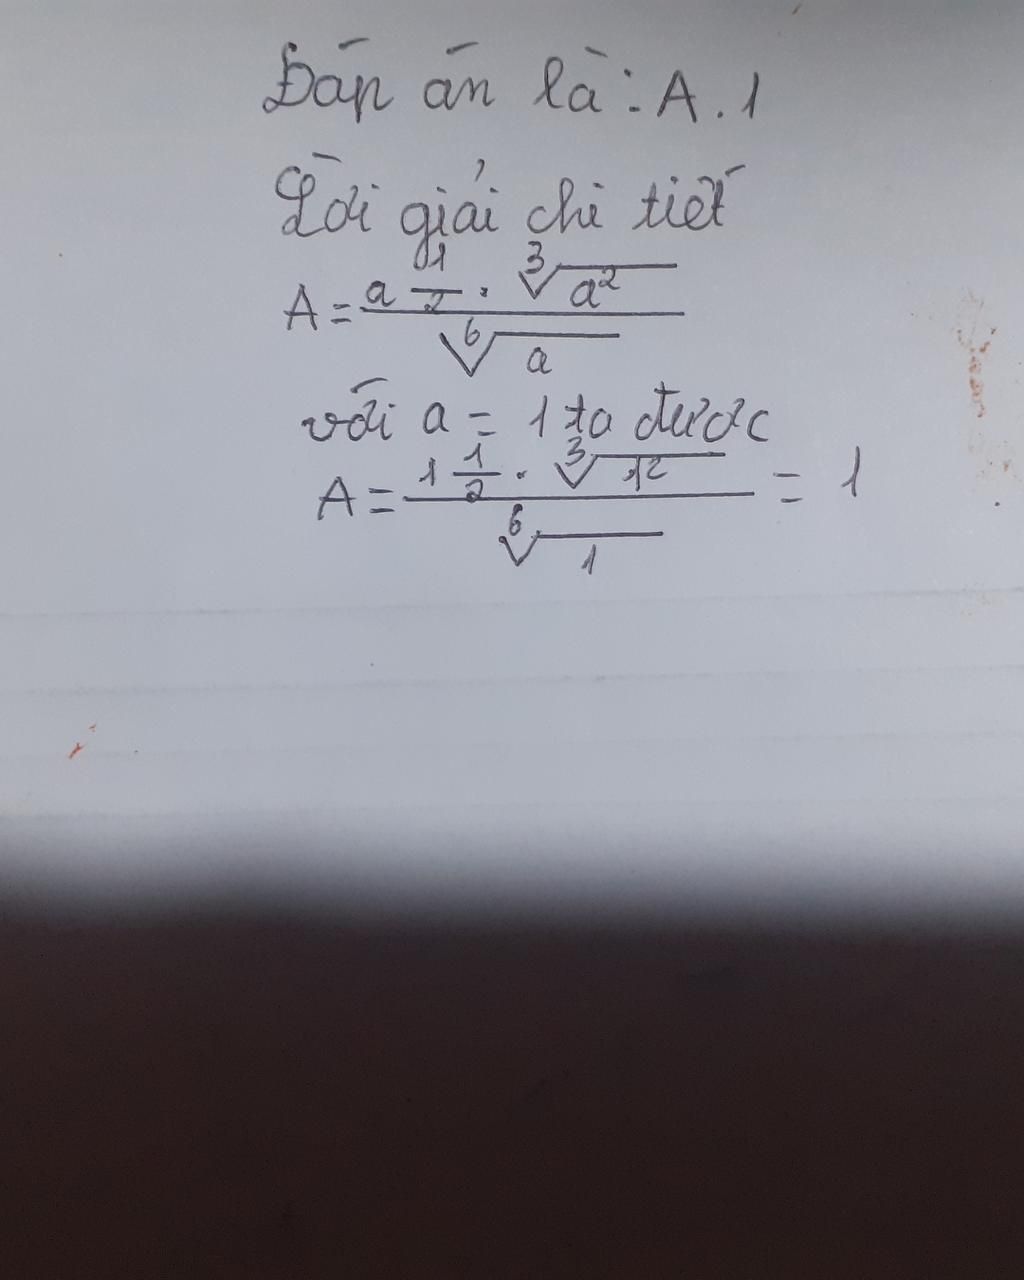 Đáp án là: A. 1
Lời giải chi tiết
A = \frac{a^{\frac{1}{2}} \cdot \sqrt[3]{a^2}}{\sqrt[6]{a}}
với a = 1 ta được
A = \frac{1^{\frac{1}{2}} \cdot \sqrt[3]{1^2}}{\sqrt[6]{1}} = 1